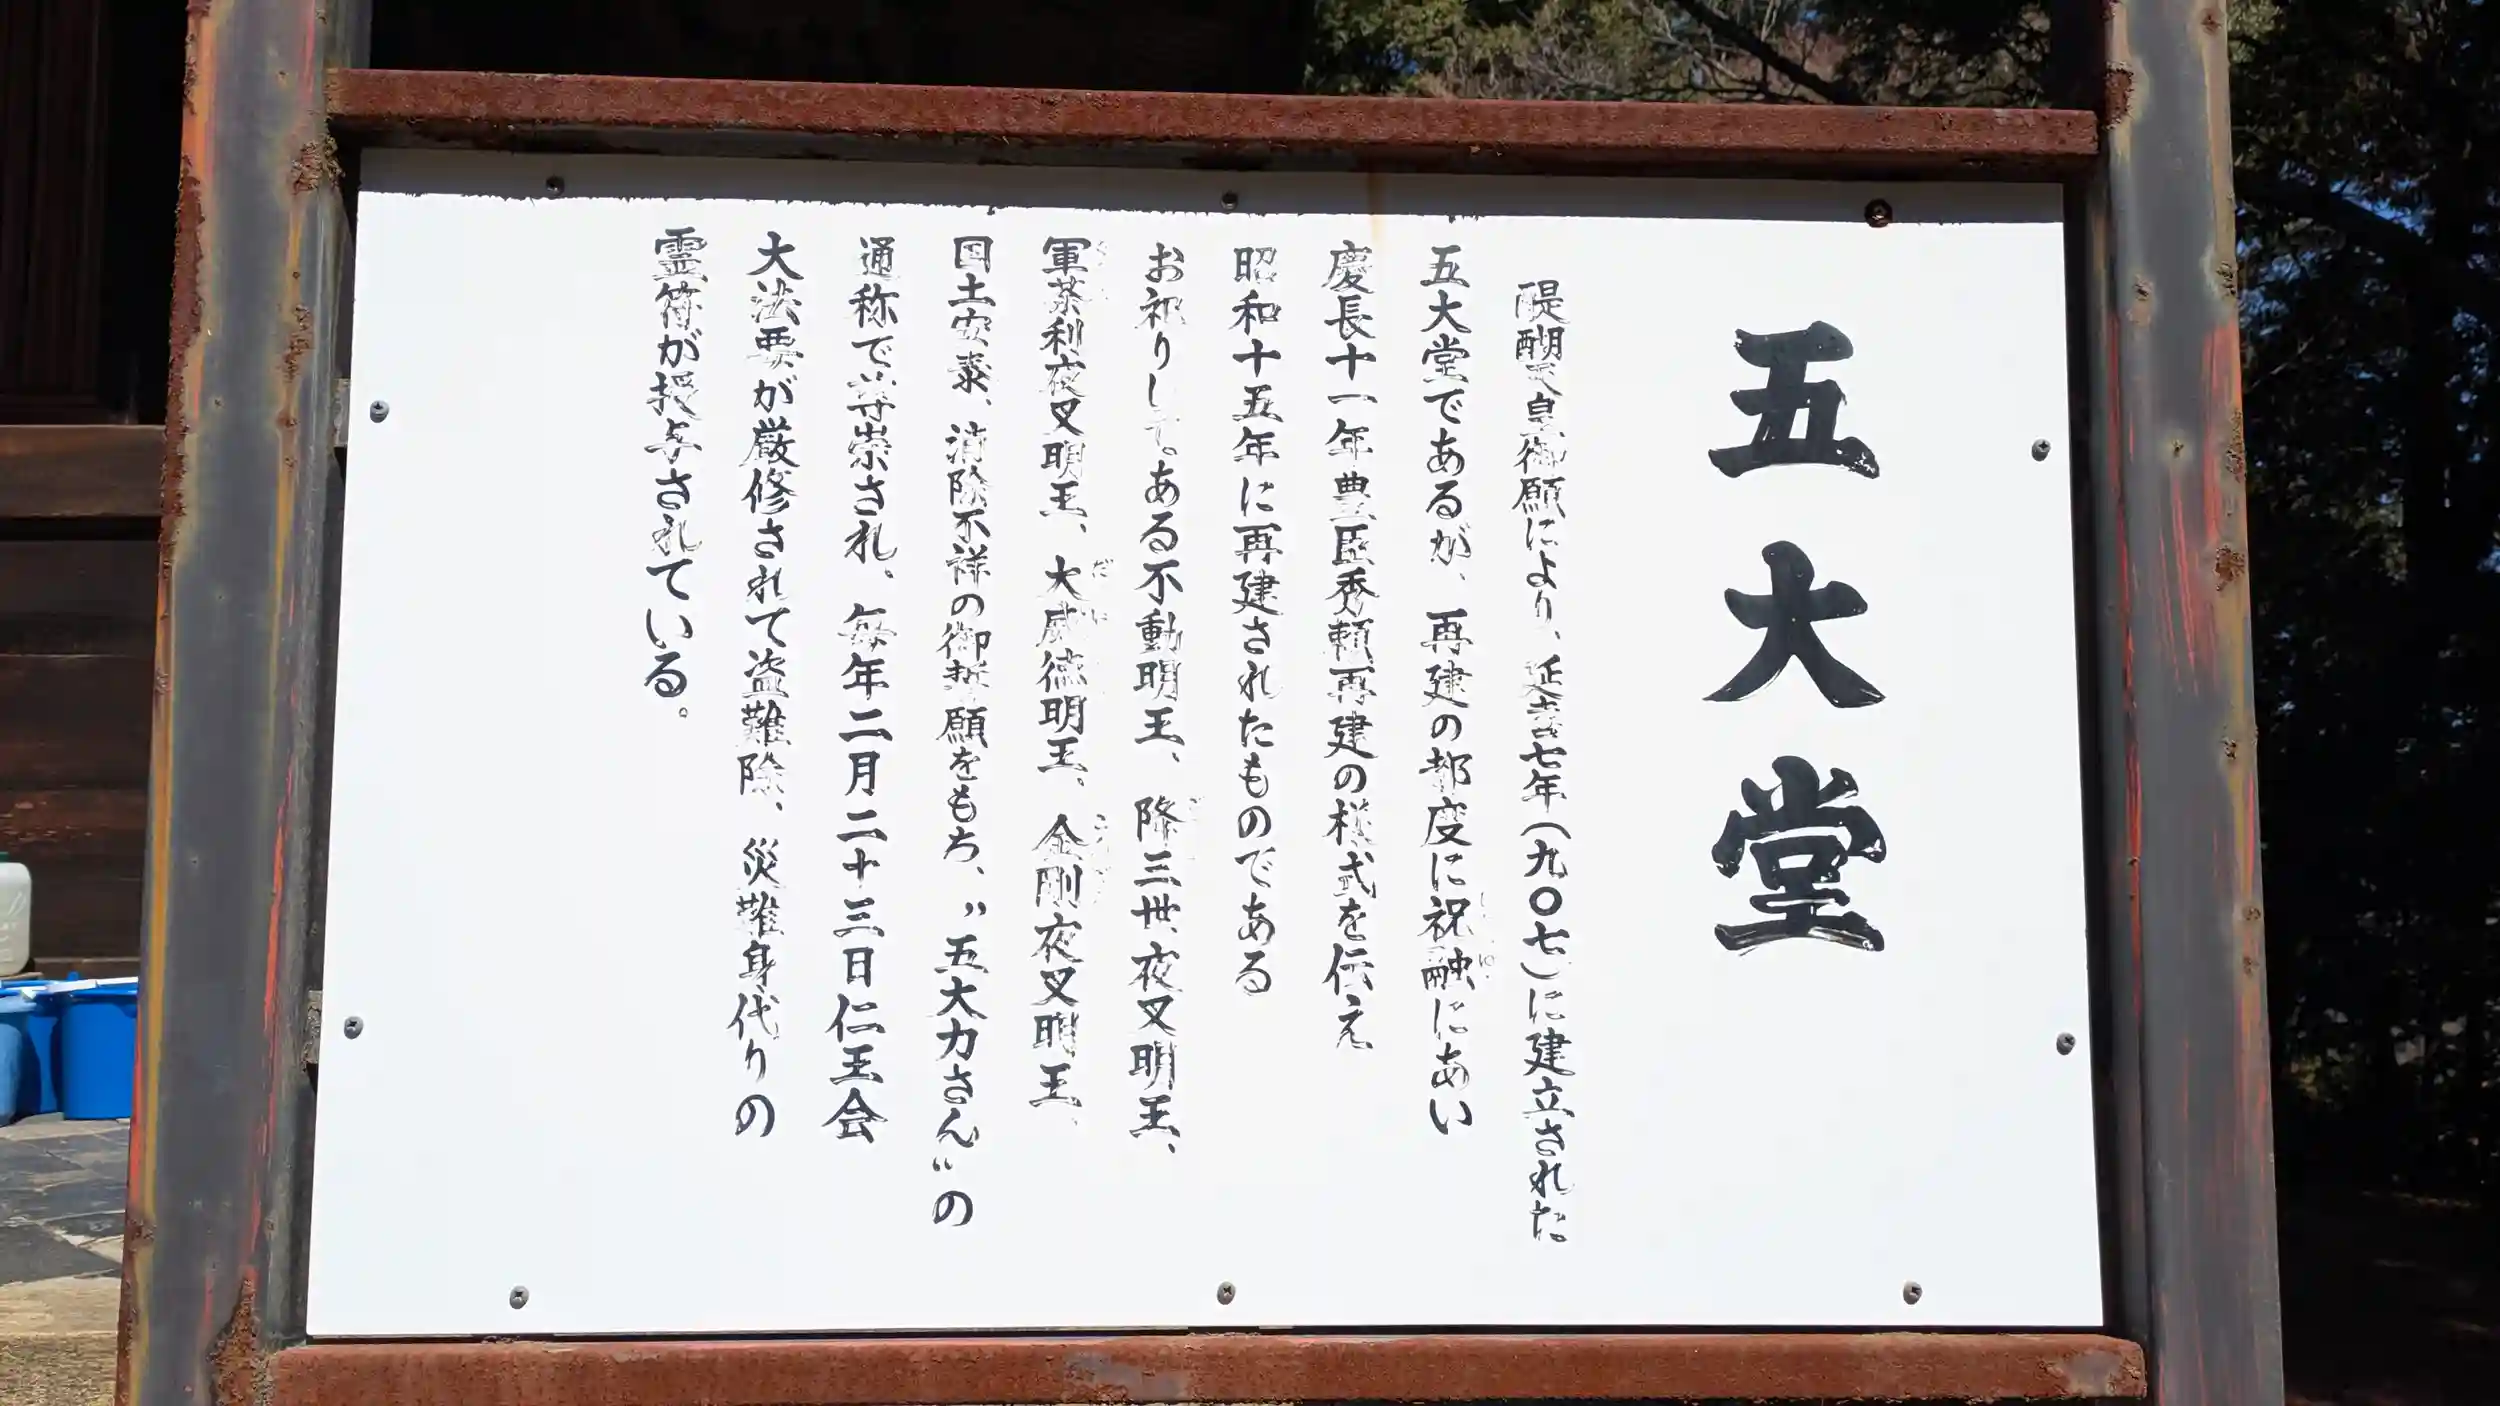 五大堂
醍醐天皇御願により、延喜七年(九〇七)に建立された
五大堂であるが、再建の都度に祝融にあい
慶長十一年豊臣秀頼再建の様式を伝え
昭和十五年に再建されたものである
お祀りして。ある不動明王、降三世夜叉明王、
軍荼利夜叉明王、大威徳明王、金剛夜叉明王、
国土安泰、消除不祥の御誓願をもち、〝五大力さん〟の
通称で尊崇され、毎年二月二十三日仁王会
大法要が厳修されて盗難除、災難身代りの
霊符が授与されている。